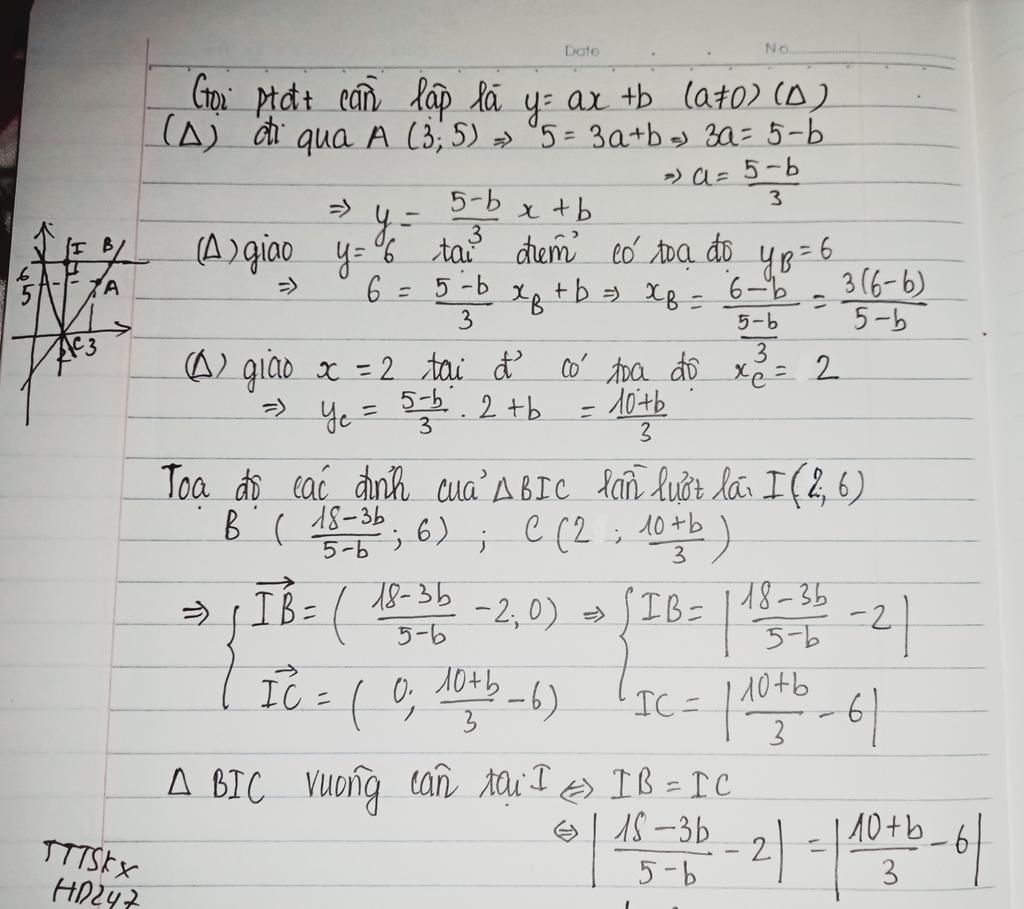 Date No
Gọi ptđt cần lập là y = ax + b (a≠0) (Δ)
(Δ) đi qua A (3; 5) ⇒ 5 = 3a+b ⇒ 3a = 5-b
⇒ a = \frac{5-b}{3}
⇒ y = \frac{5-b}{3} x + b
(Δ) giao y = 6 tại điểm có toạ độ y_B = 6
⇒ 6 = \frac{5-b}{3} x_B + b ⇒ x_B = \frac{6-b}{\frac{5-b}{3}} = \frac{3(6-b)}{5-b}
(Δ) giao x = 2 tại đ' có toạ độ x_C = 2
⇒ y_C = \frac{5-b}{3} . 2 + b = \frac{10+b}{3}
I B
6
5 A
C 3
Toạ độ các đỉnh của ΔBIC lần lượt là: I(2; 6)
B ( \frac{18-3b}{5-b} ; 6) ; C (2 ; \frac{10+b}{3})
⇒ { \overrightarrow{IB} = ( \frac{18-3b}{5-b} - 2; 0) ⇒ { IB = | \frac{18-3b}{5-b} - 2 |
\overrightarrow{IC} = ( 0; \frac{10+b}{3} - 6) IC = | \frac{10+b}{3} - 6 |
Δ BIC vuông cân tại I ⇔ IB = IC
⇔ | \frac{18-3b}{5-b} - 2 | = | \frac{10+b}{3} - 6 |
TTTSKX
HD247